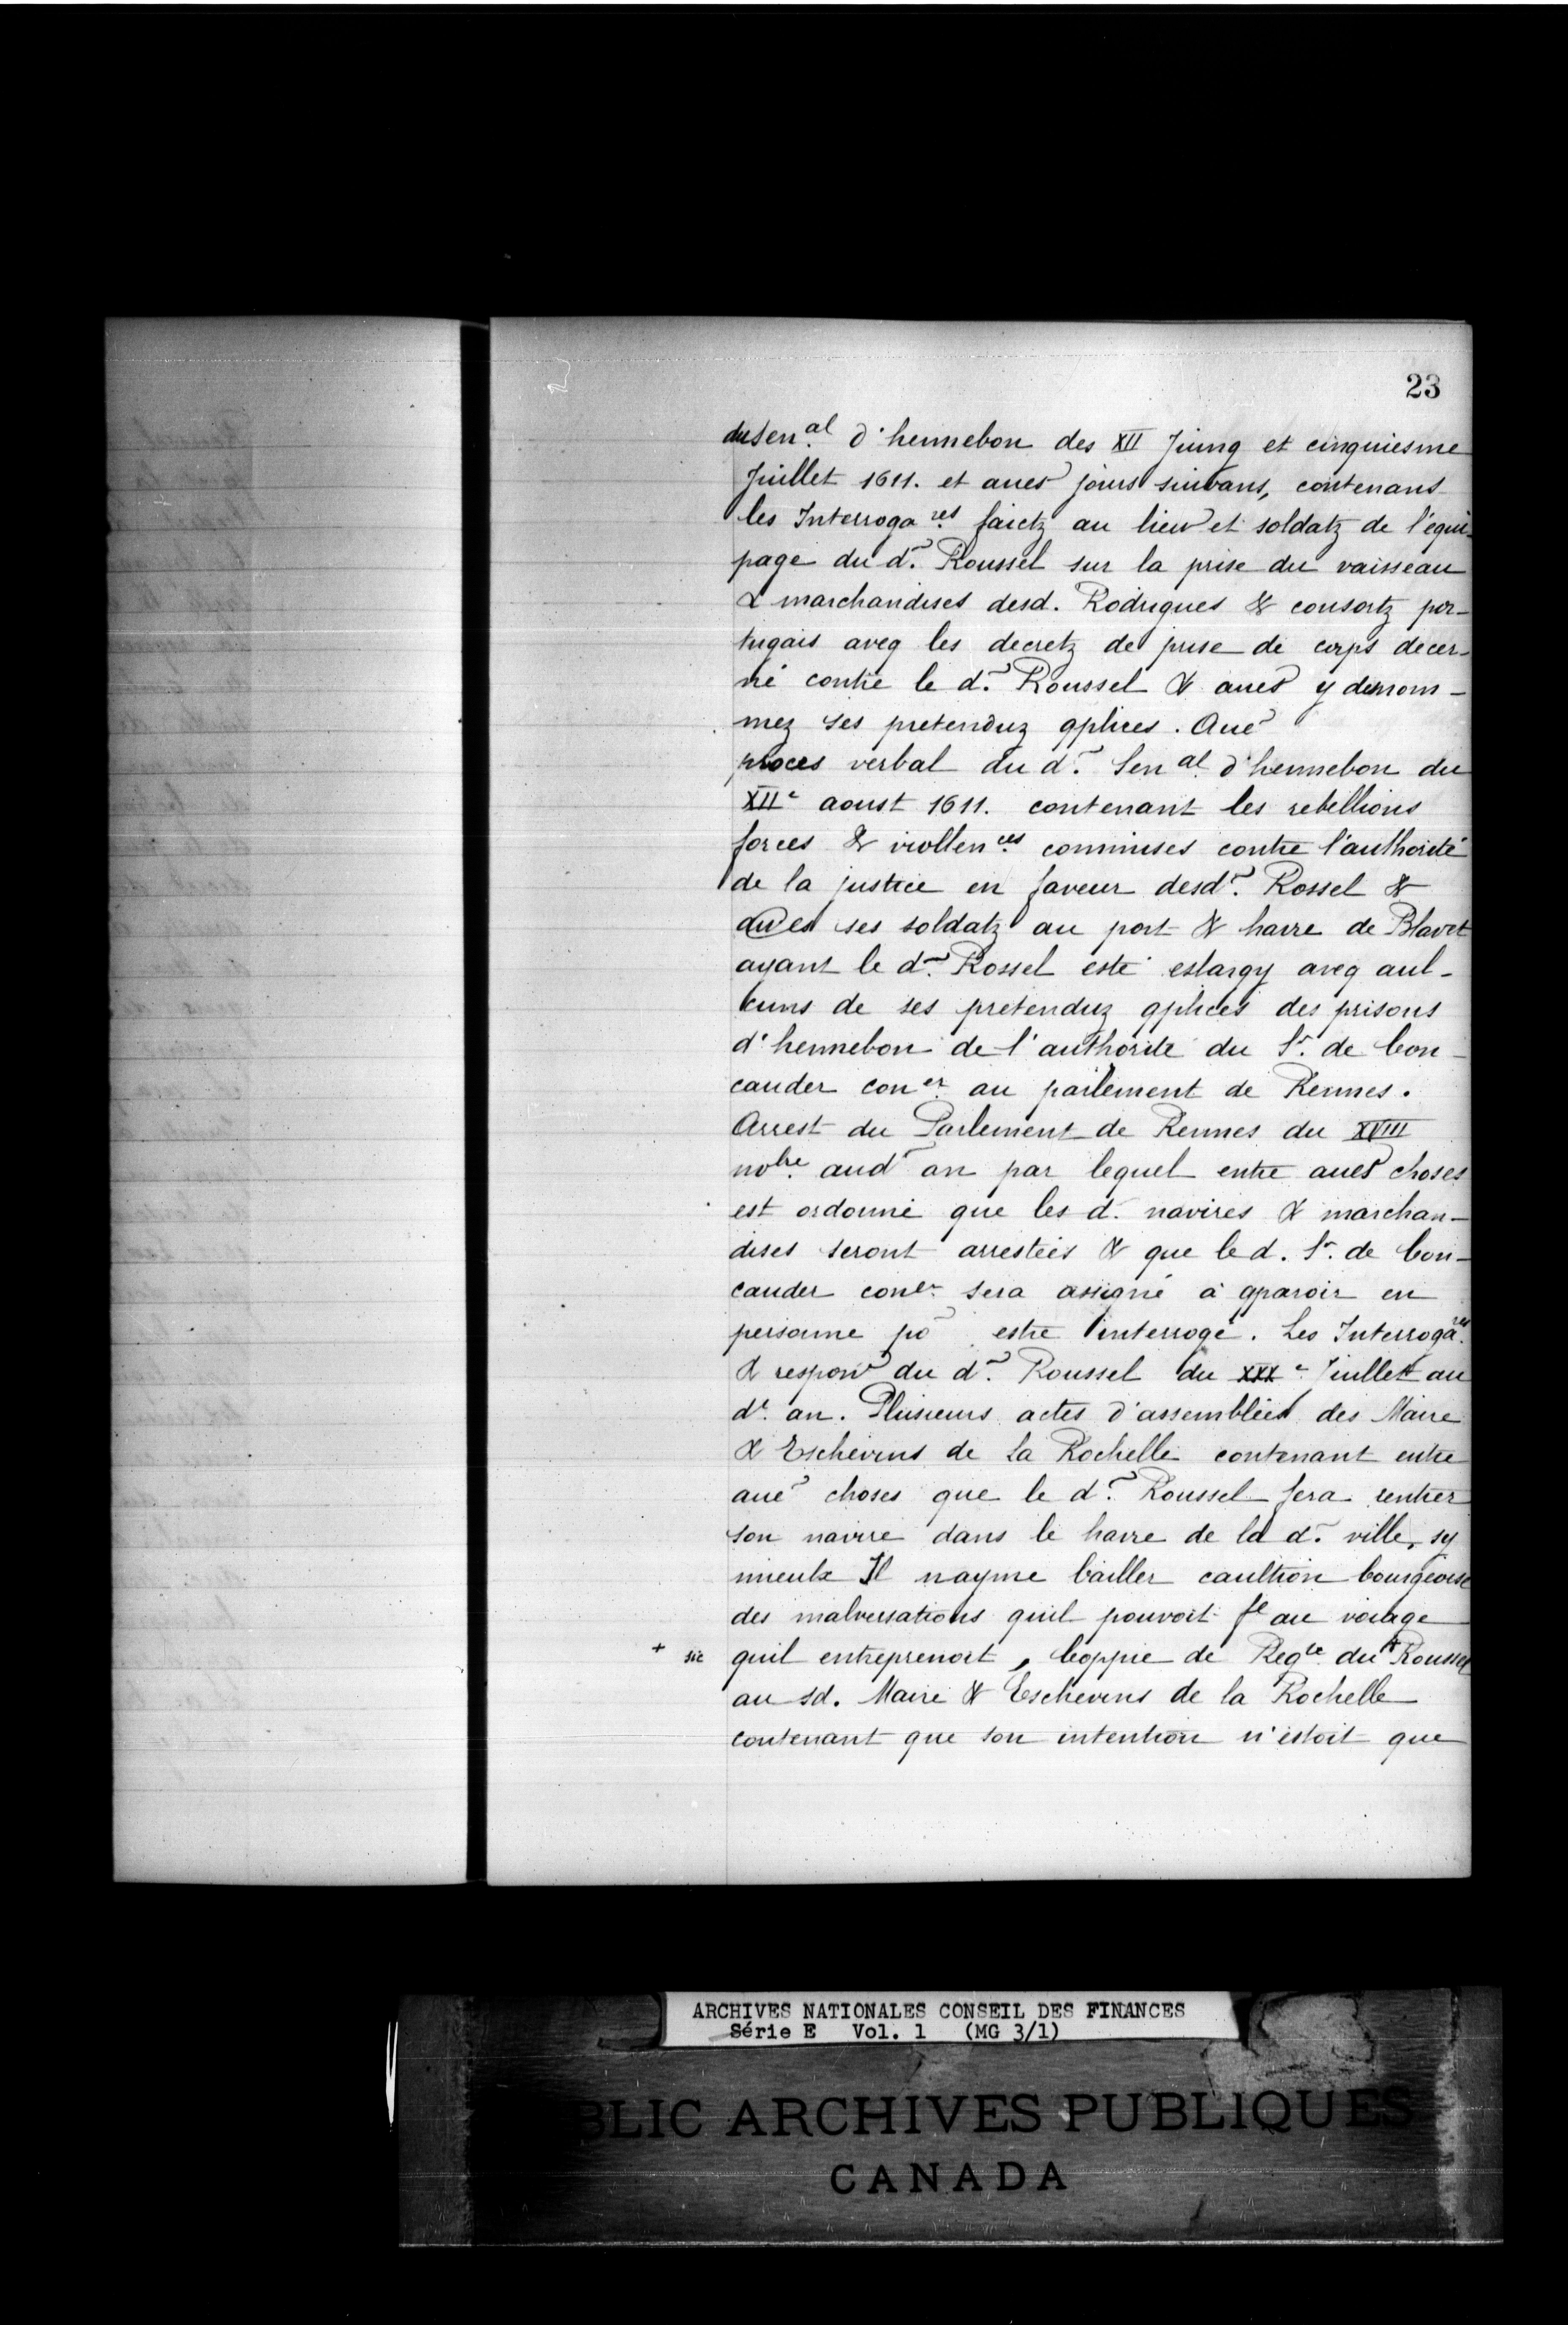 23
du Sen.al d'hennebon des XII Juing et cinquiesme
Juillet 1611. et aues jours suivans, contenans
les Interroga.res faictz au lieu et soldatz de l'équi-
page du d. Roussel sur la prise du vaisseau
& marchandises desd. Rodrigues & consortz por-
tugais aveq les decretz de prise de corps decer-
né contre le d. Roussel & aues y denom-
mez ses pretenduz gplices. Aue
proces verbal du d. Sen.al d'hennebon du
XIIe aoust 1611. contenant les rebellions
forces & viollen.ces commises contre l'authorité
de la justice en faveur desd. Rossel &
aues ses soldatz au port & havre de Blavet
ayant le d. Rossel esté eslargy aveq aul-
cuns de ses pretenduz gplices des prisons
d'hennebon de l'authorité du Sr. de Con-
cauder con.er au parlement de Rennes.
Arrest du Parlement de Rennes du XVIII
nobre. aud an par lequel entre aues choses
est ordonné que les d. navires & marchan-
dises seront arrestées & que le d. Sr. de Con-
cauder coner. sera assigné à gparoir en
personne po estre interrogé. Les Interroga.res
& respon du d. Roussel du XXXe Juillet au
dt. an. Plusieurs actes d'assemblées des Maire
& Eschevins de La Rochelle contenant entre
aue choses que le d. Roussel fera rentrer
son navire dans le havre de la d. ville, sy
mieulx Il nayme bailler caultion bourgeoise
des malversations quil pouvoit fe au voiage
+ sic quil entreprenoit, Coppie de Reqte du + Roussel
au sd. Maire & Eschevins de la Rochelle
contenant que son intention n'estoit que
ARCHIVES NATIONALES CONSEIL DES FINANCES
Série E Vol. 1 (MG 3/1)
BLIC ARCHIVES PUBLIQUES
CANADA